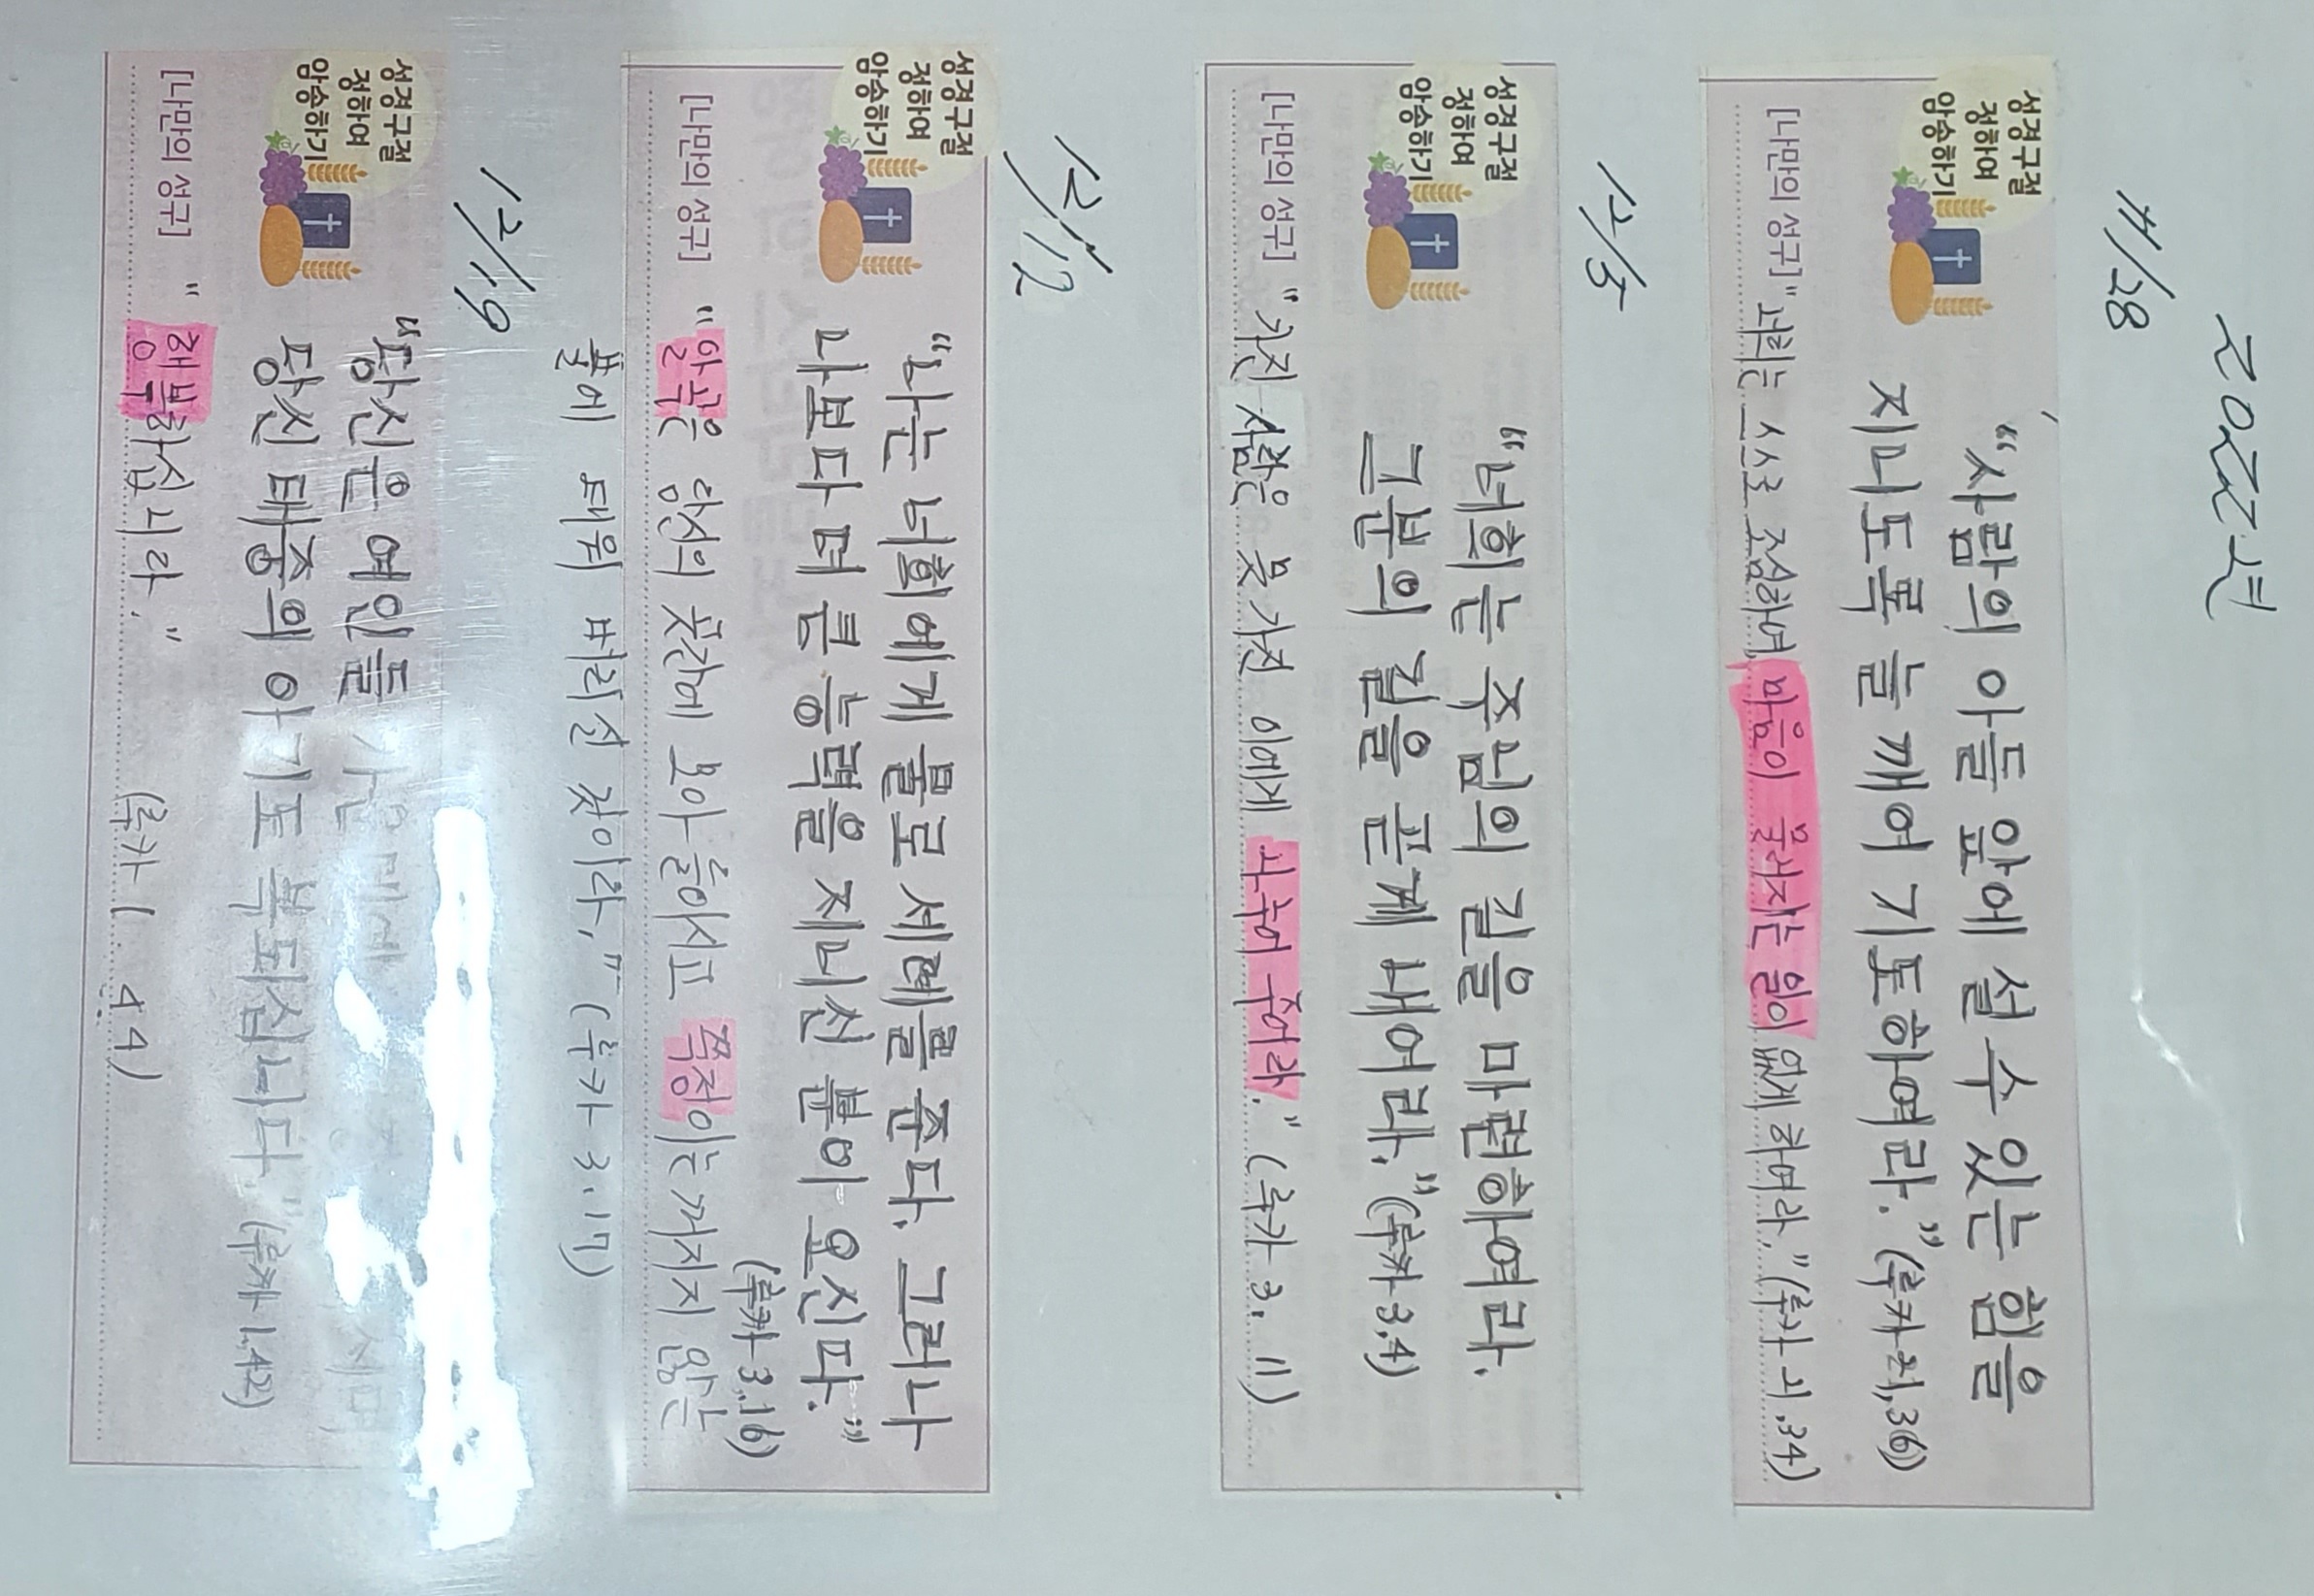 2022년
11/28
성경구절
정하여
암송하기
“사람의 아들 앞에 설 수 있는 힘을
지니도록 늘 깨어 기도하여라.” (루카 21,36)
[나만의 성구] “너희는 스스로 조심하여, 마음이 물러지는 일이 없게 하여라.” (루카 21,34)
12/5
성경구절
정하여
암송하기
“너희는 주님의 길을 마련하여라.
그분의 길을 곧게 내어라.” (루카 3,4)
[나만의 성구] “가진 사람은 못 가진 이에게 나누어 주어라.” (루카 3. 11)
12/12
성경구절
정하여
암송하기
“나는 너희에게 물로 세례를 준다. 그러나
나보다 더 큰 능력을 지니신 분이 오신다.”
(루카 3,16)
[나만의 성구] “알곡은 당신의 곳간에 모아 들이시고 쭉정이는 꺼지지 않는
불에 태워 버리실 것이라.” (루카 3.17)
12/19
성경구절
정하여
암송하기
“당신은 여인들 가운데에서
당신 태중의 아기도 복되십니다.” (루카 1,42)
[나만의 성구] “행복하십니라.” (루카 1. 44)